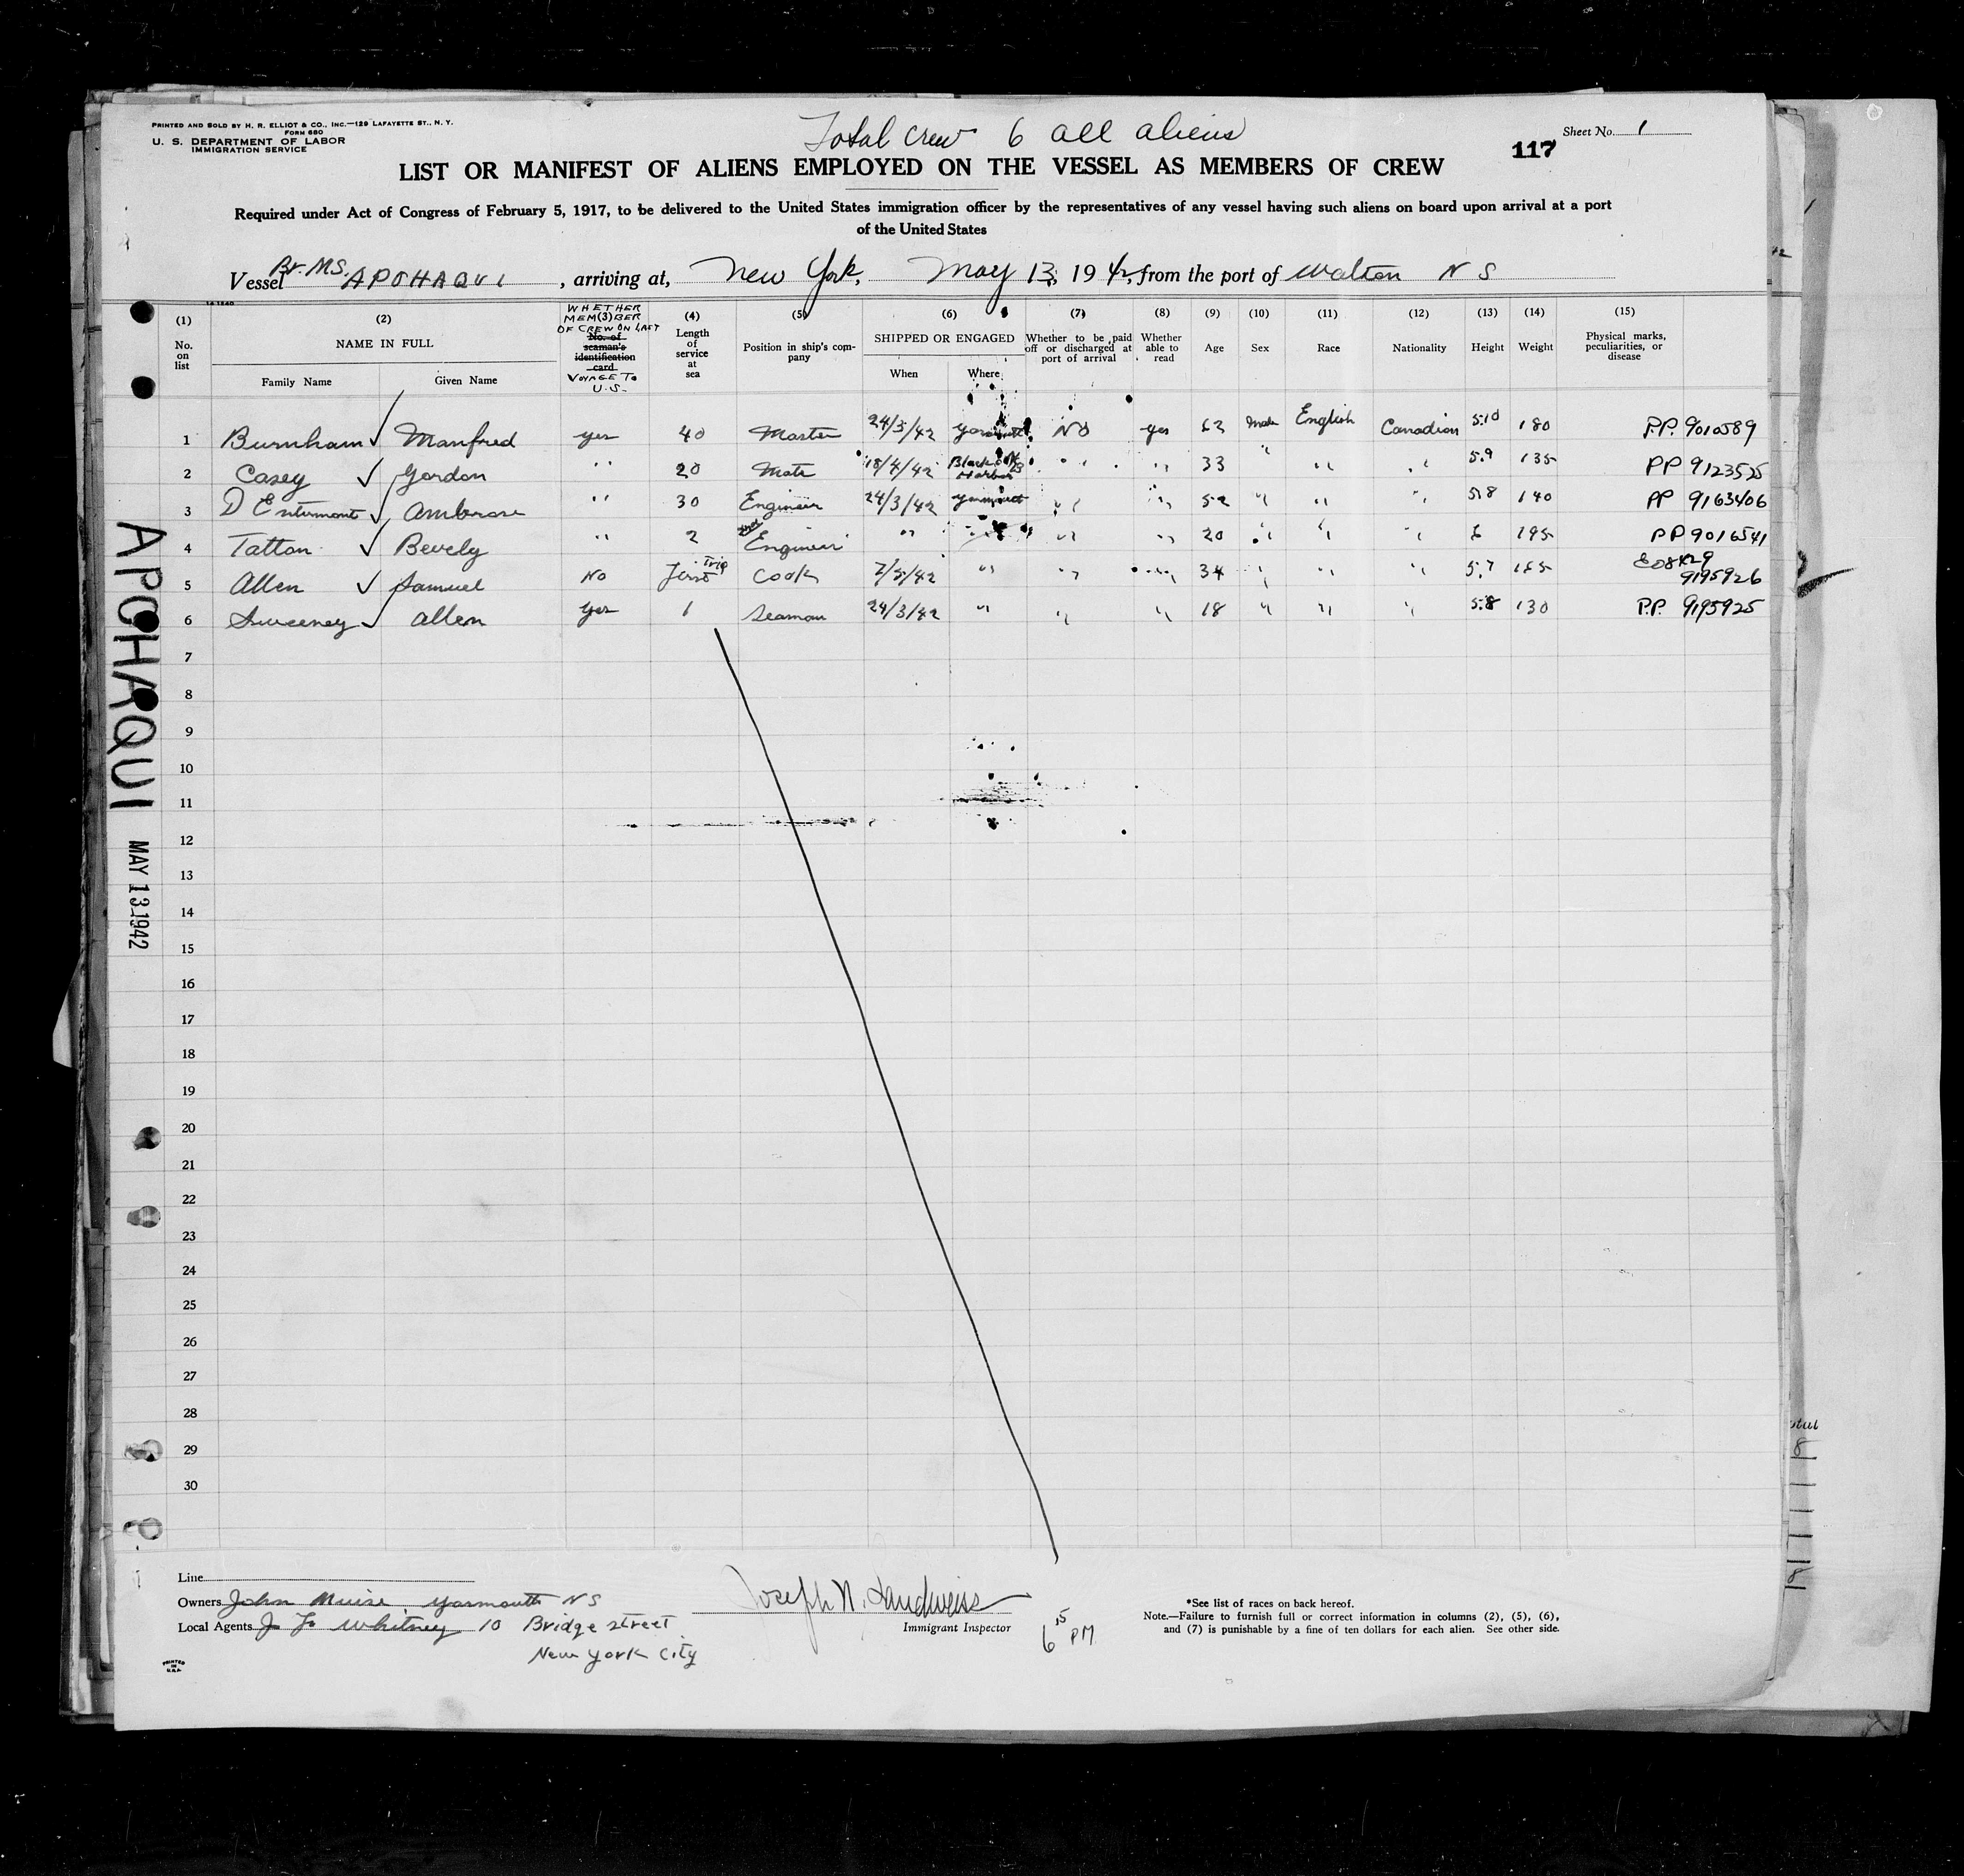 PRINTED AND SOLD BY H. R. ELLIOT & CO., INC.—129 LAFAYETTE ST., N. Y.
FORM 680
U. S. DEPARTMENT OF LABOR
IMMIGRATION SERVICE
Total crew 6 all aliens
Sheet No. 1
117
LIST OR MANIFEST OF ALIENS EMPLOYED ON THE VESSEL AS MEMBERS OF CREW
Required under Act of Congress of February 5, 1917, to be delivered to the United States immigration officer by the representatives of any vessel having such aliens on board upon arrival at a port
of the United States
Vessel Br. M.S. APOHAQUI, arriving at, New York, May 13, 1942, from the port of Walton N S
(1) No. on list
(2) NAME IN FULL Family Name Given Name
WHETHER MEMBER OF CREW ON LAST VOYAGE TO U.S.
(3) No. of seaman's identification card
(4) Length of service at sea
(5) Position in ship's company
(6) SHIPPED OR ENGAGED When Where
(7) Whether to be paid off or discharged at port of arrival
(8) Whether able to read
(9) Age
(10) Sex
(11) Race
(12) Nationality
(13) Height
(14) Weight
(15) Physical marks, peculiarities, or disease
1 Burnham ✓ Manfred yes 40 Master 24/3/42 Yarmouth No yes 62 Male English Canadian 5.10 180 PP. 9010589
2 Casey ✓ Gordon " 20 Mate 18/4/42 Blacks Harbor " " 33 " " " 5.9 135 PP 9123525
3 D Entremont ✓ Ambrose " 30 Engineer 24/3/42 Yarmouth " " 52 " " " 5.8 140 PP 9163406
4 Tatton ✓ Bevely " 2 Engineer " " " 20 " " " 6 195 PP 9016541
5 Allen ✓ Samuel No First Trip Cook 7/5/42 " " " 34 " " " 5.7 155 9195926
6 Sweeney ✓ Allen Yes 1 Seaman 24/3/42 " " " 18 " " " 5.8 130 P.P. 9195925
7
8
9
10
11
12
13
14
15
16
17
18
19
20
21
22
23
24
25
26
27
28
29
30
APOHAQUI
MAY 13 1942
Line
Owners John Muise Yarmouth N S
Local Agents J F Whitney 10 Bridge Street
New York City
Joseph N. Landweiss
Immigrant Inspector
6 15 PM
*See list of races on back hereof.
Note.—Failure to furnish full or correct information in columns (2), (5), (6),
and (7) is punishable by a fine of ten dollars for each alien. See other side.
PRINTED IN U.S.A.